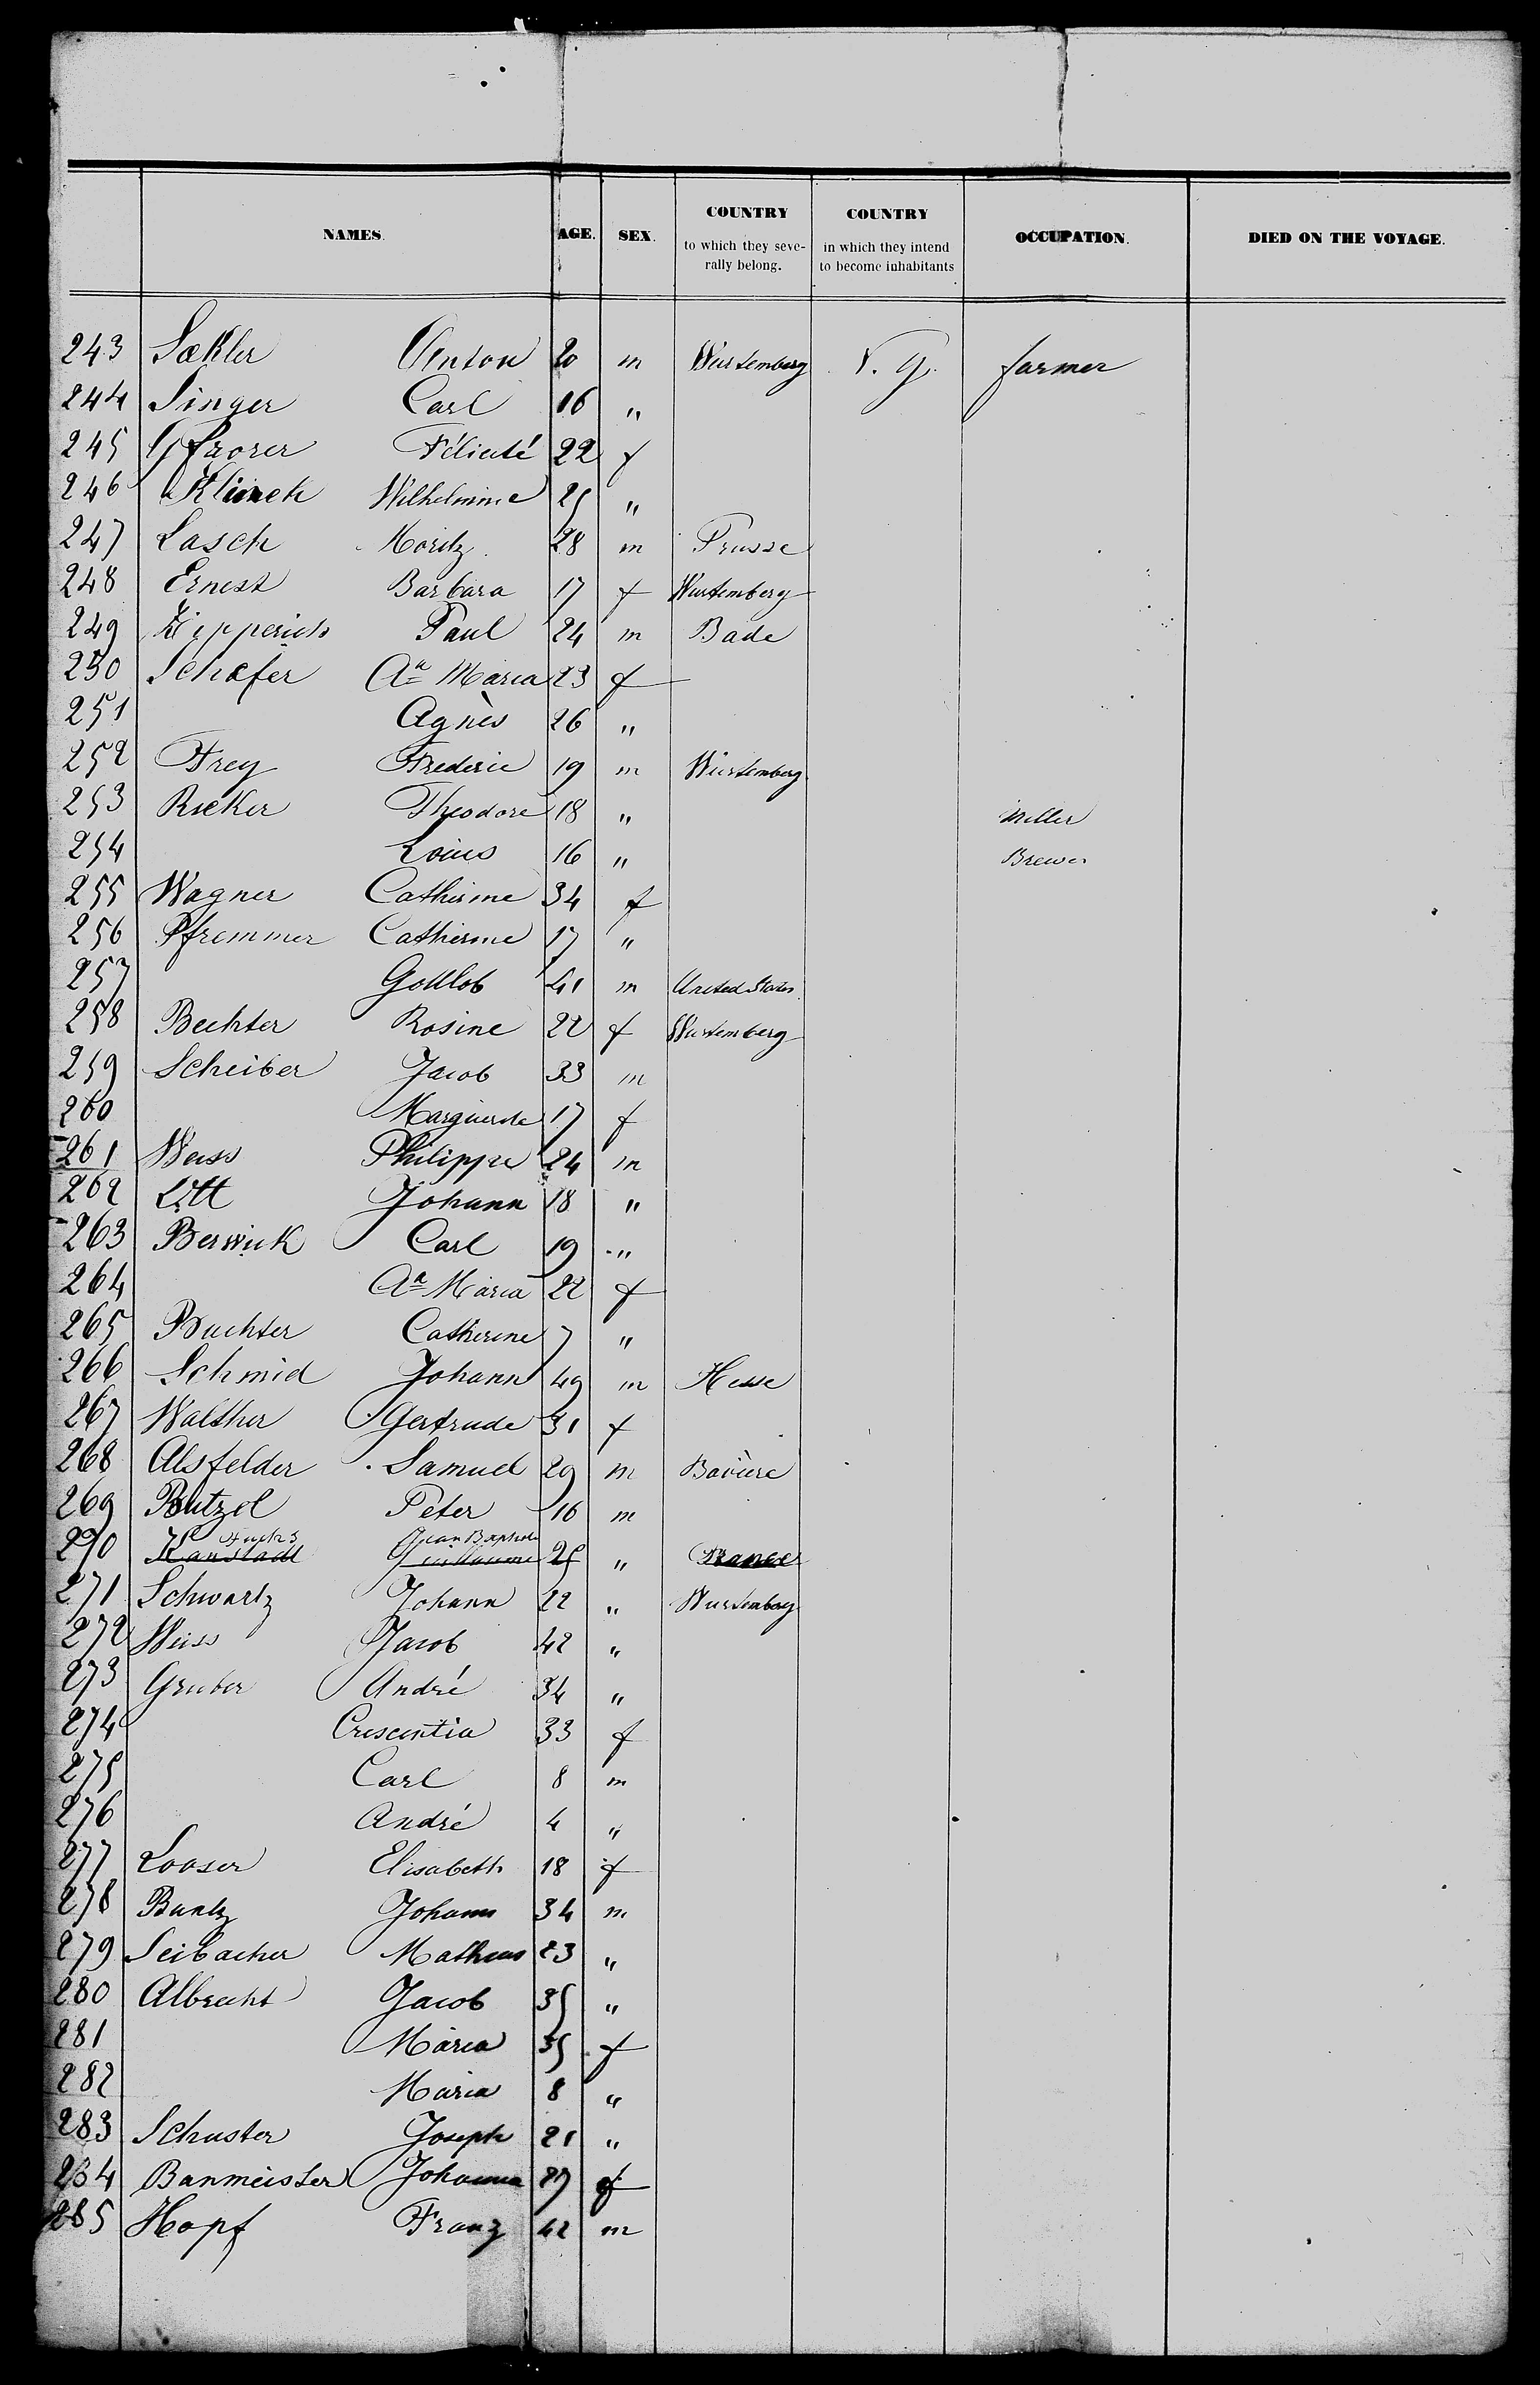 NAMES. AGE. SEX. COUNTRY to which they severally belong. COUNTRY in which they intend to become inhabitants OCCUPATION. DIED ON THE VOYAGE.
243 Sækler Anton 20 m Wurtemberg farmer
244 Singer Carl 16 "
245 Gfrorer Félicité 22 f
246 Klinck Wilhelmine 25 "
247 Lasch Moritz 28 m Prusse
248 Ernest Barbara 17 f Wurtemberg
249 Zipperich Paul 24 m Bade
250 Schæfer Aª Maria 23 f
251 Agnès 26 "
252 Frey Frederic 19 m Würtemberg
253 Rieker Theodore 18 " Miller
254 Louis 16 " Brewer
255 Wagner Catherine 34 f
256 Pfremmer Catherine 17 "
257 Gottlob 41 m United States
258 Bechter Rosine 22 f Wurtemberg
259 Scheiber Jacob 33 m
260 Marguerite 17 f
261 Weiss Philippe 24 m
262 Litt Johann 18 "
263 Berwick Carl 19 "
264 Aª Maria 22 f
265 Buchter Catherine 7 "
266 Schmid Johann 49 m Hesse
267 Walther Gertrude 31 f
268 Alsfelder Samuel 29 m Bavière
269 Butzel Peter 16 m
Fuchs Jean Baptiste
270 Kanstadt Guillaume 25 " France
271 Schwartz Johann 22 " Wurtemberg
272 Weiss Jacob 42 "
273 Gruber André 34 "
274 Crescentia 33 f
275 Carl 8 m
276 André 4 "
277 Looser Elisabeth 18 f
278 Buntz Johann 34 m
279 Seibacher Matheus 23 "
280 Albrecht Jacob 35 "
281 Maria 35 f
282 Maria 8 "
283 Schuster Joseph 21 "
284 Banmeister Johanna 27 f
285 Hopf Franz 42 m